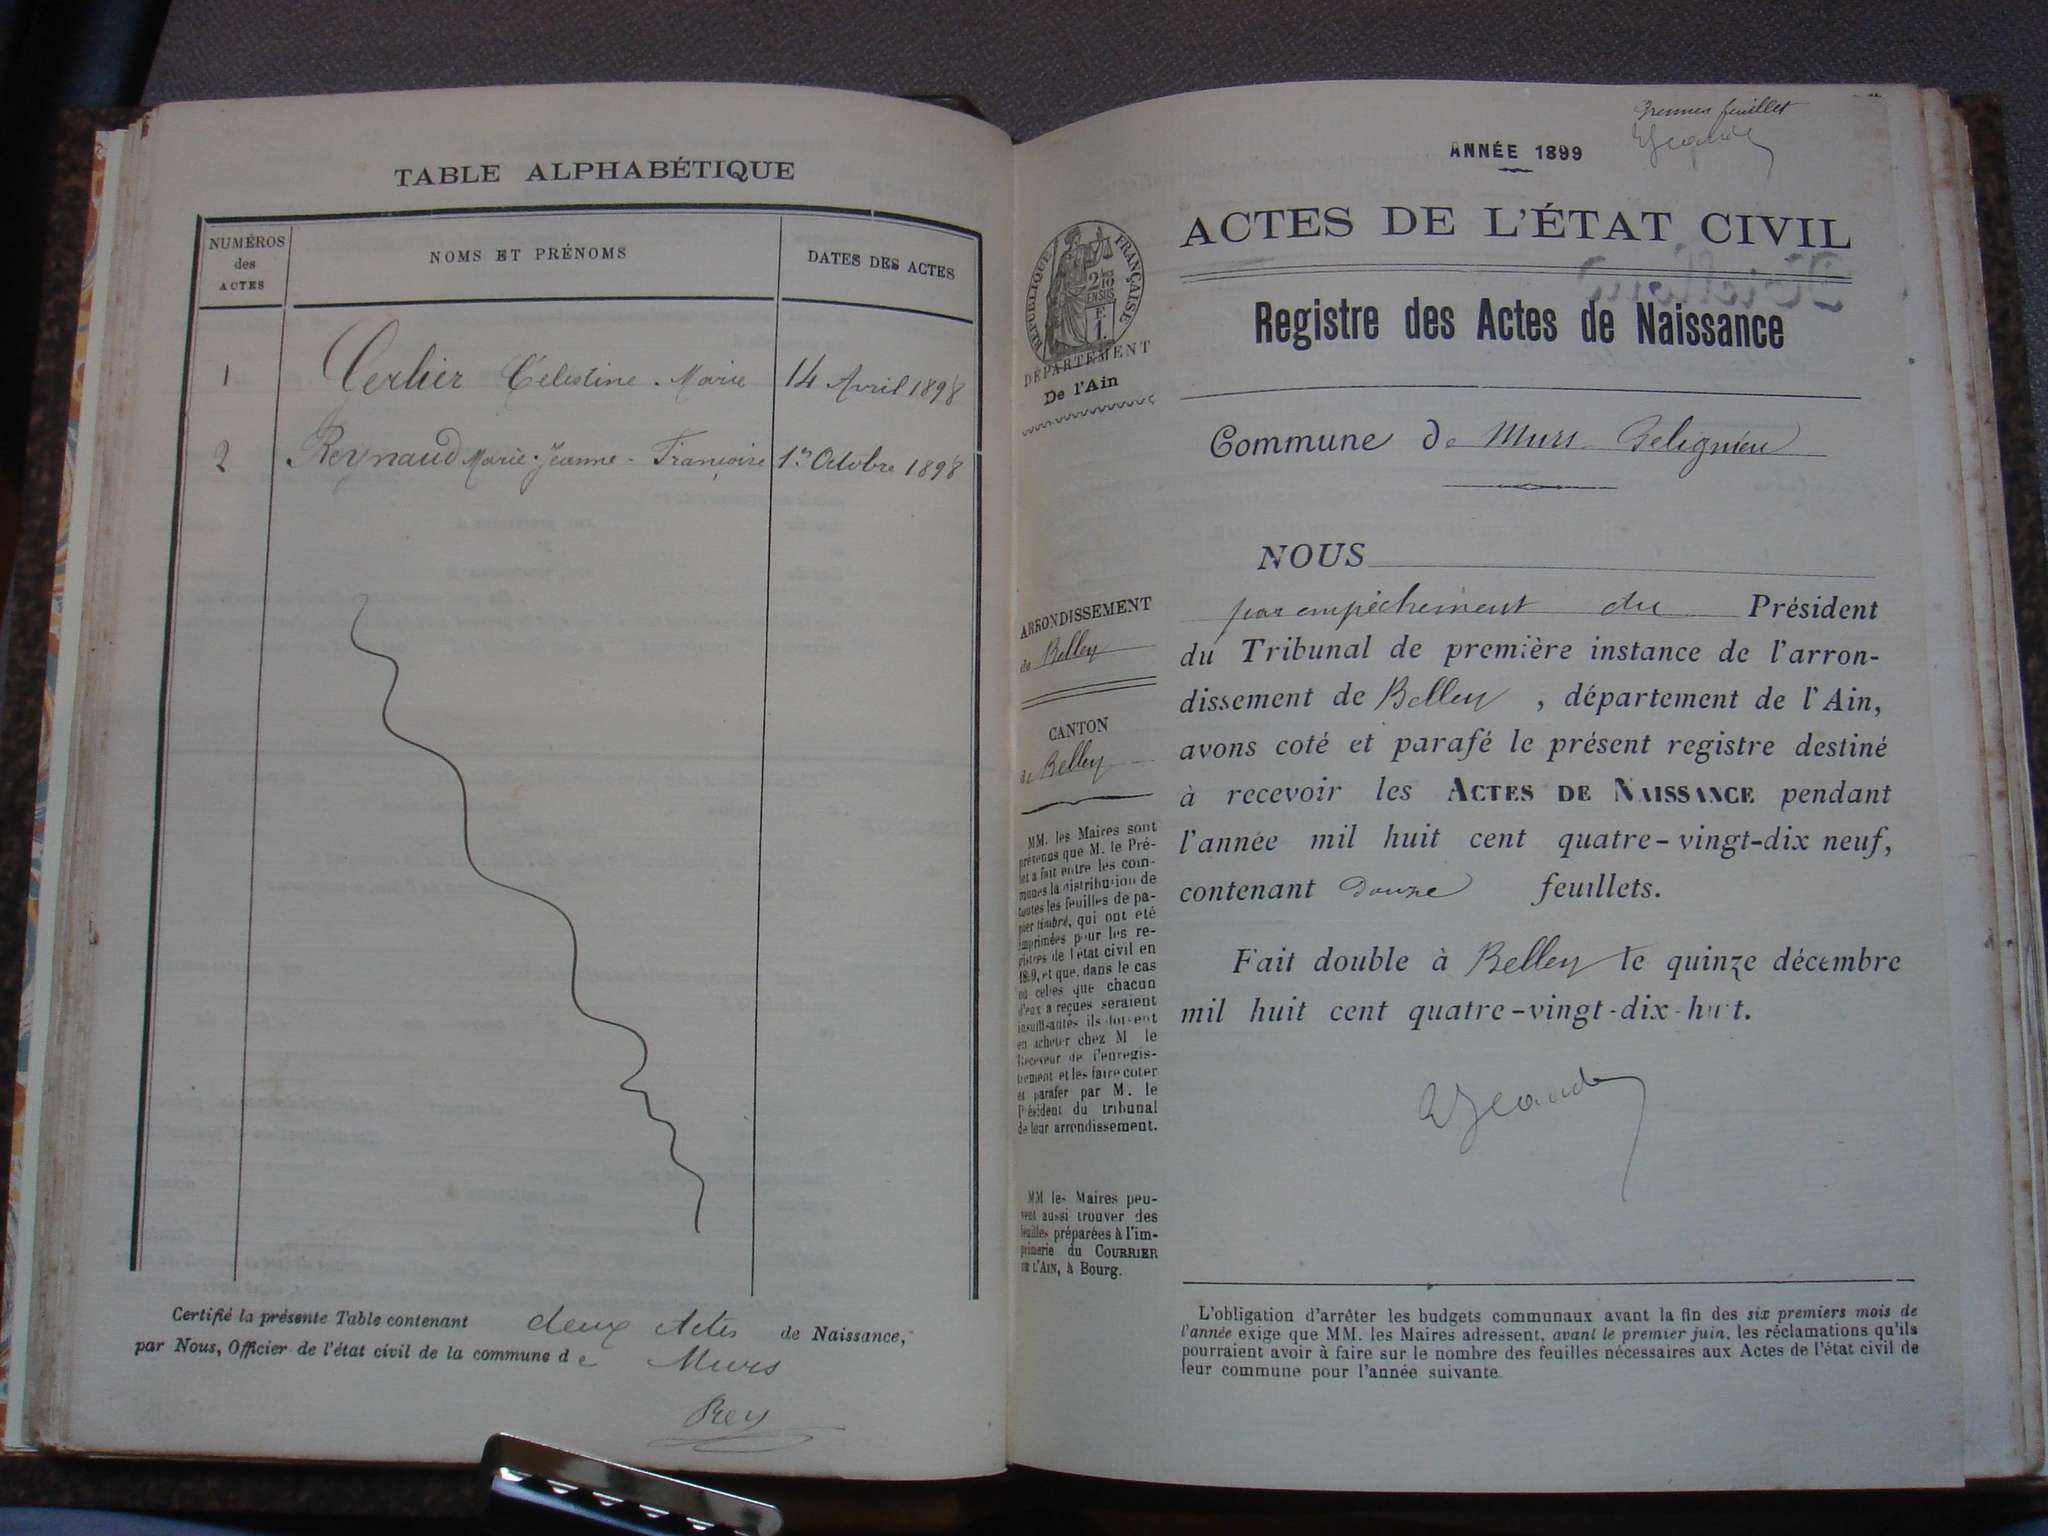 TABLE ALPHABÉTIQUE
NUMÉROS des ACTES
NOMS ET PRÉNOMS
DATES DES ACTES
1 Cerlier Célestine - Marie 14 Avril 1898
2 Reynaud Marie-Jeanne-Françoise 1er Octobre 1898
Certifié la présente Table contenant deux Actes de Naissance,
par Nous, Officier de l'état civil de la commune de Murs
Rey
Premier feuillet
ANNÉE 1899
ACTES DE L'ÉTAT CIVIL
Registre des Actes de Naissance
Commune de Murs Gelignieu
RÉPUBLIQUE FRANÇAISE
DÉPARTEMENT
De l'Ain
ARRONDISSEMENT
de Belley
CANTON
de Belley
MM. les Maires sont
prévenus que M. le Pré-
fet a fait entre les com-
munes la distribution de
toutes les feuilles de pa-
pier timbré, qui ont été
imprimées pour les re-
gistres de l'état civil en
1899, et que, dans le cas
où celles que chacun
d'eux a reçues seraient
insuffisantes ils doivent
en acheter chez M. le
Receveur de l'enregis-
trement et les faire coter
et parafer par M. le
Président du tribunal
de leur arrondissement.
MM. les Maires peu-
vent aussi trouver des
feuilles préparées à l'im-
primerie du COURRIER
DE L'AIN, à Bourg.
NOUS
par empêchement du Président
du Tribunal de première instance de l'arron-
dissement de Belley, département de l'Ain,
avons coté et parafé le présent registre destiné
à recevoir les ACTES DE NAISSANCE pendant
l'année mil huit cent quatre-vingt-dix neuf,
contenant douze feuillets.
Fait double à Belley le quinze décembre
mil huit cent quatre-vingt-dix-huit.
L'obligation d'arrêter les budgets communaux avant la fin des six premiers mois de
l'année exige que MM. les Maires adressent, avant le premier juin, les réclamations qu'ils
pourraient avoir à faire sur le nombre des feuilles nécessaires aux Actes de l'état civil de
leur commune pour l'année suivante.